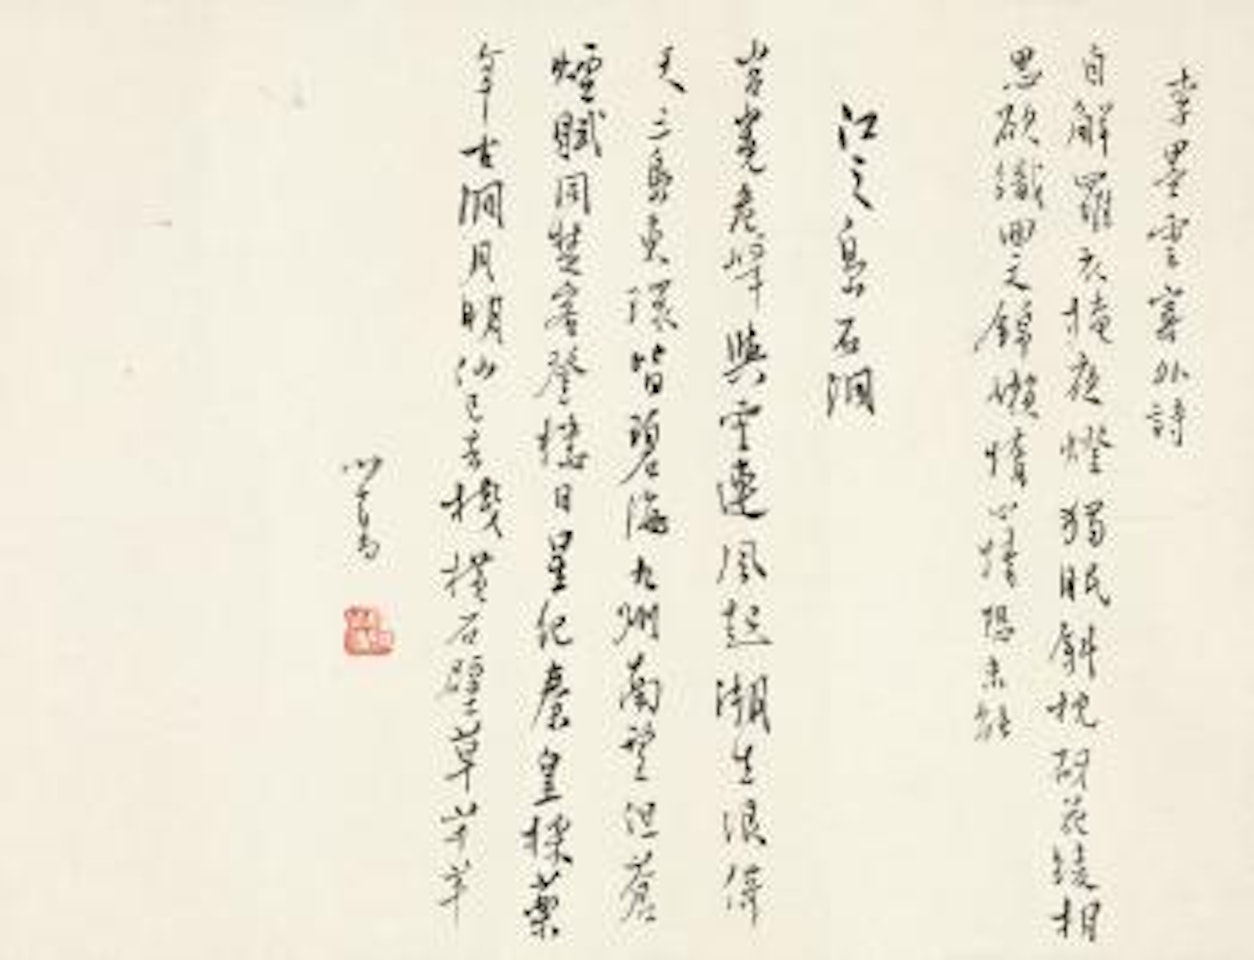 李墨雲寄外詩
自解羅衣掩夜燈獨眠斜枕砑花綾相
思欲織回文錦懶惰心情恐未能
江之島石洞
岧嶤危峰與雲連風起潮生浪倚
天三島東環皆碧海九州南望但蒼
煙賦同楚客登樓日星紀秦皇採藥
年古洞月明仙已去棧橫石壁草芊芊
心畬